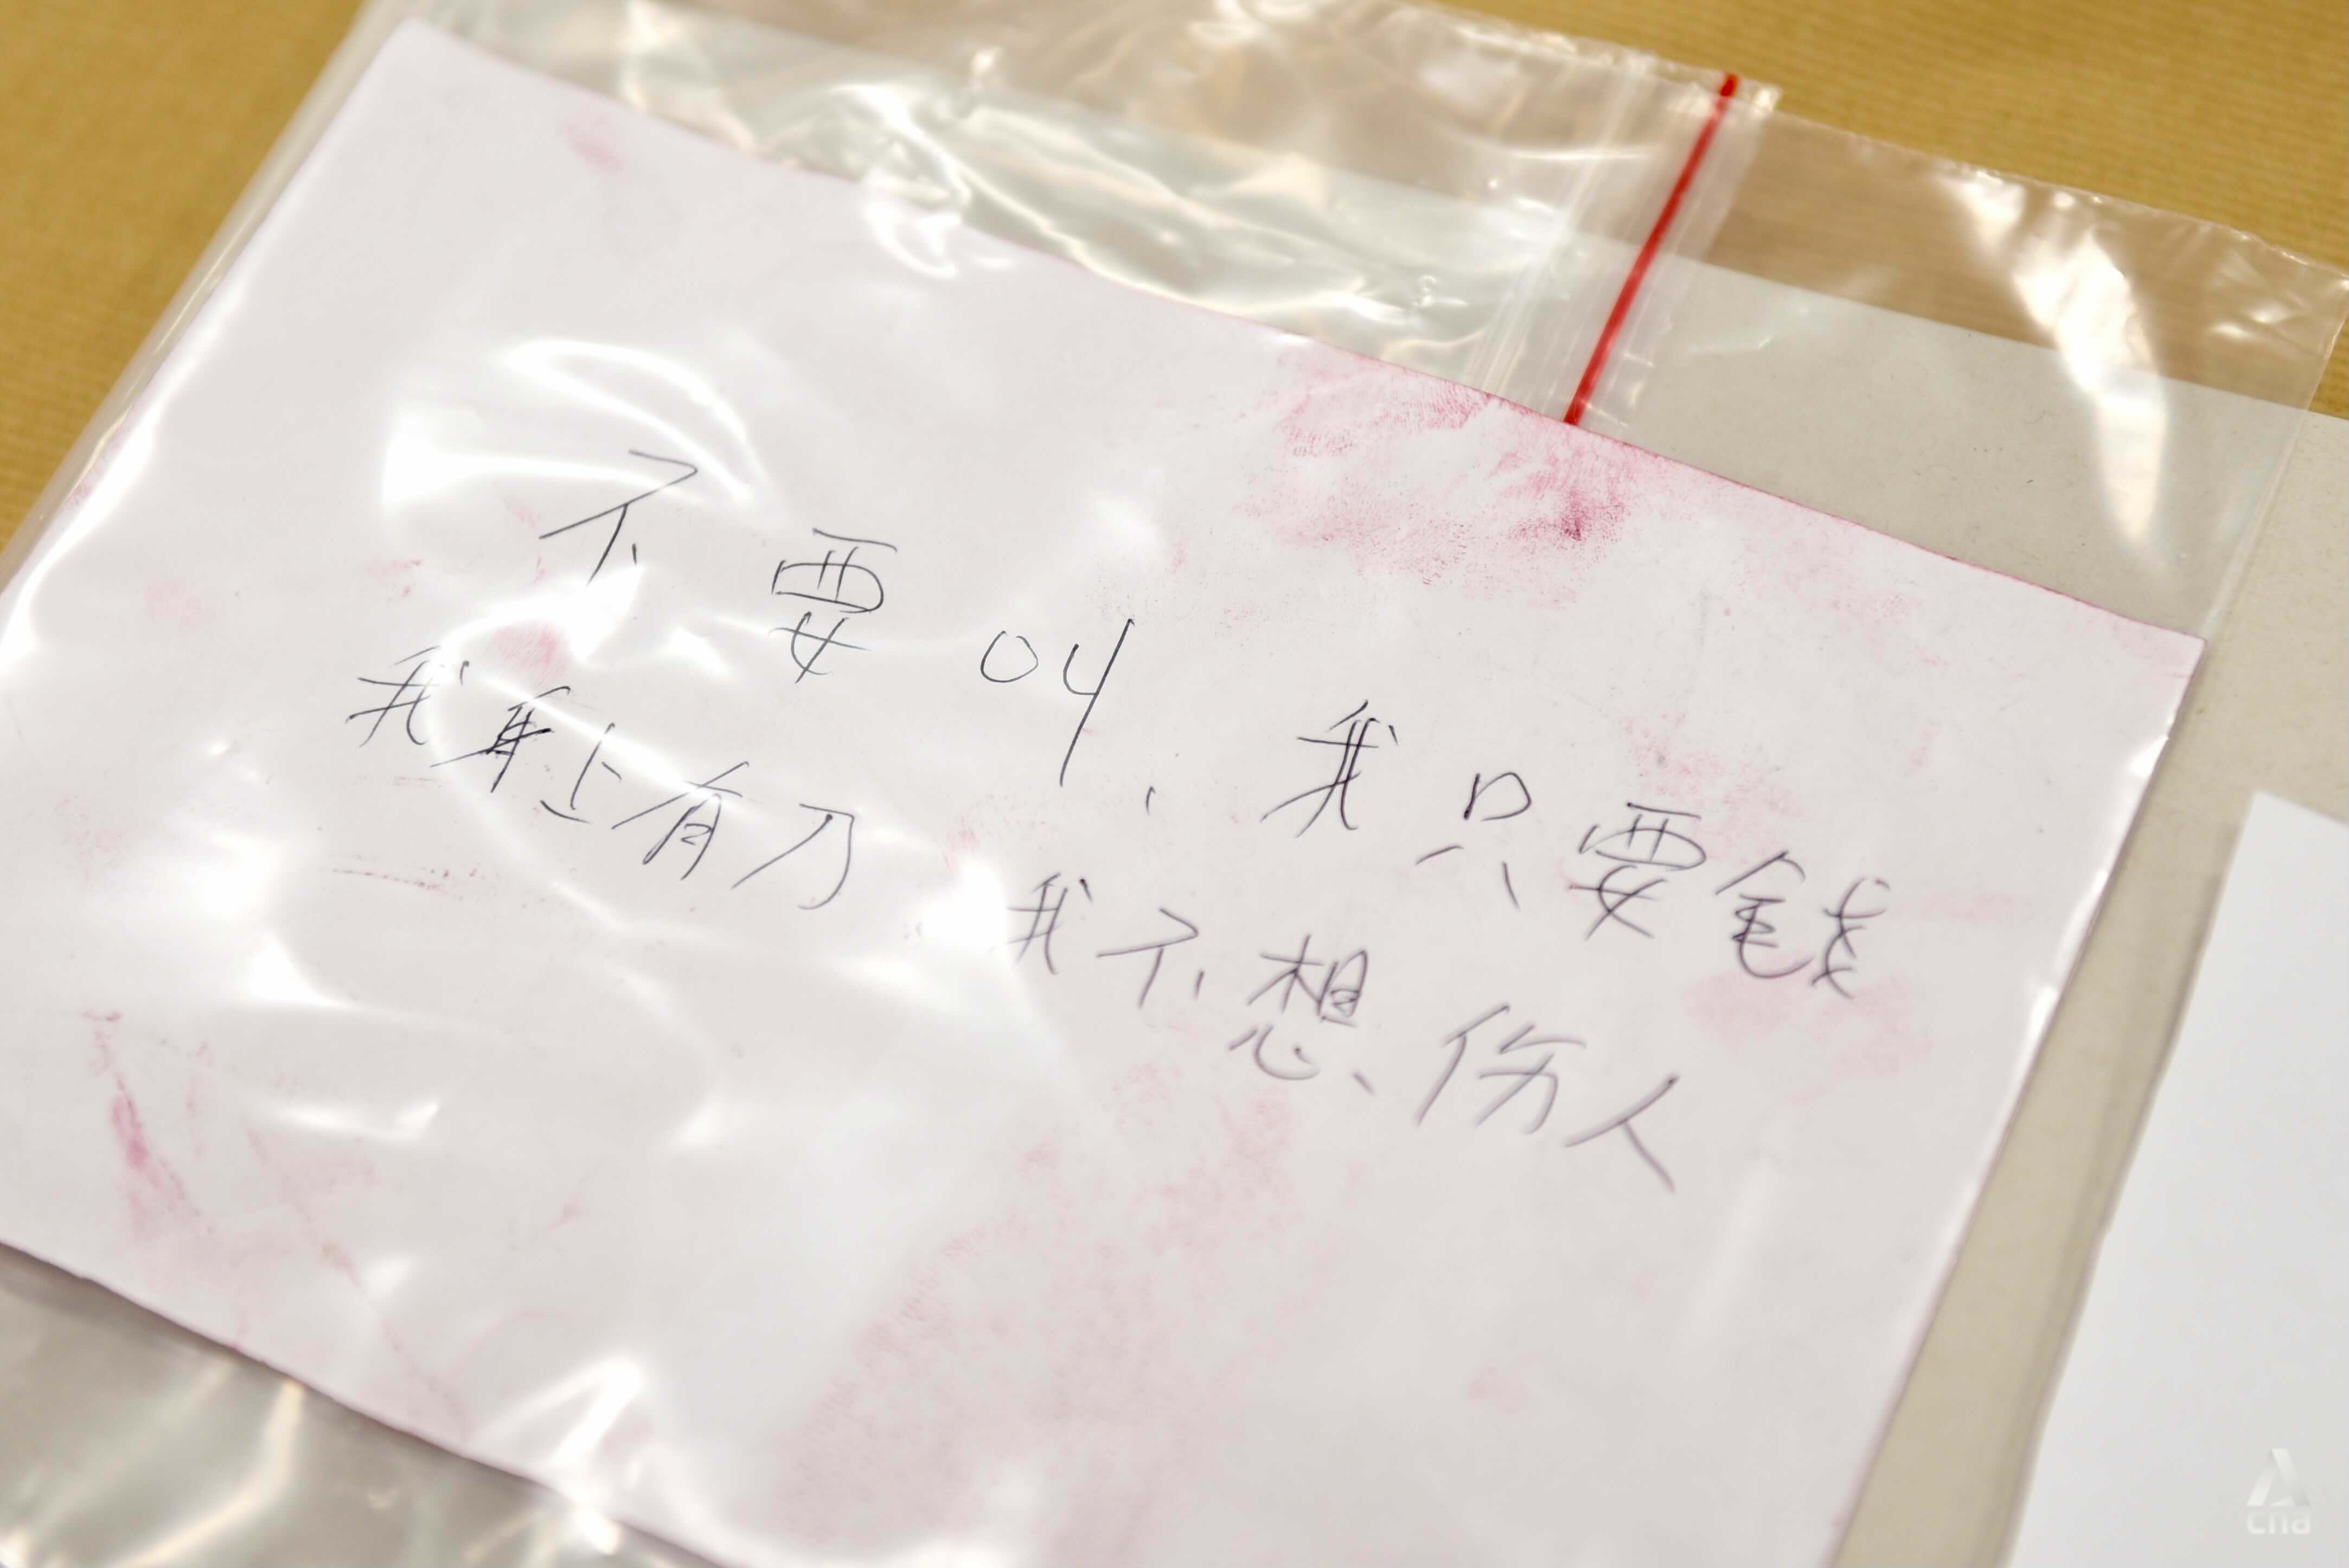 不要叫，我只要钱
我身上有刀 我不想伤人
cna